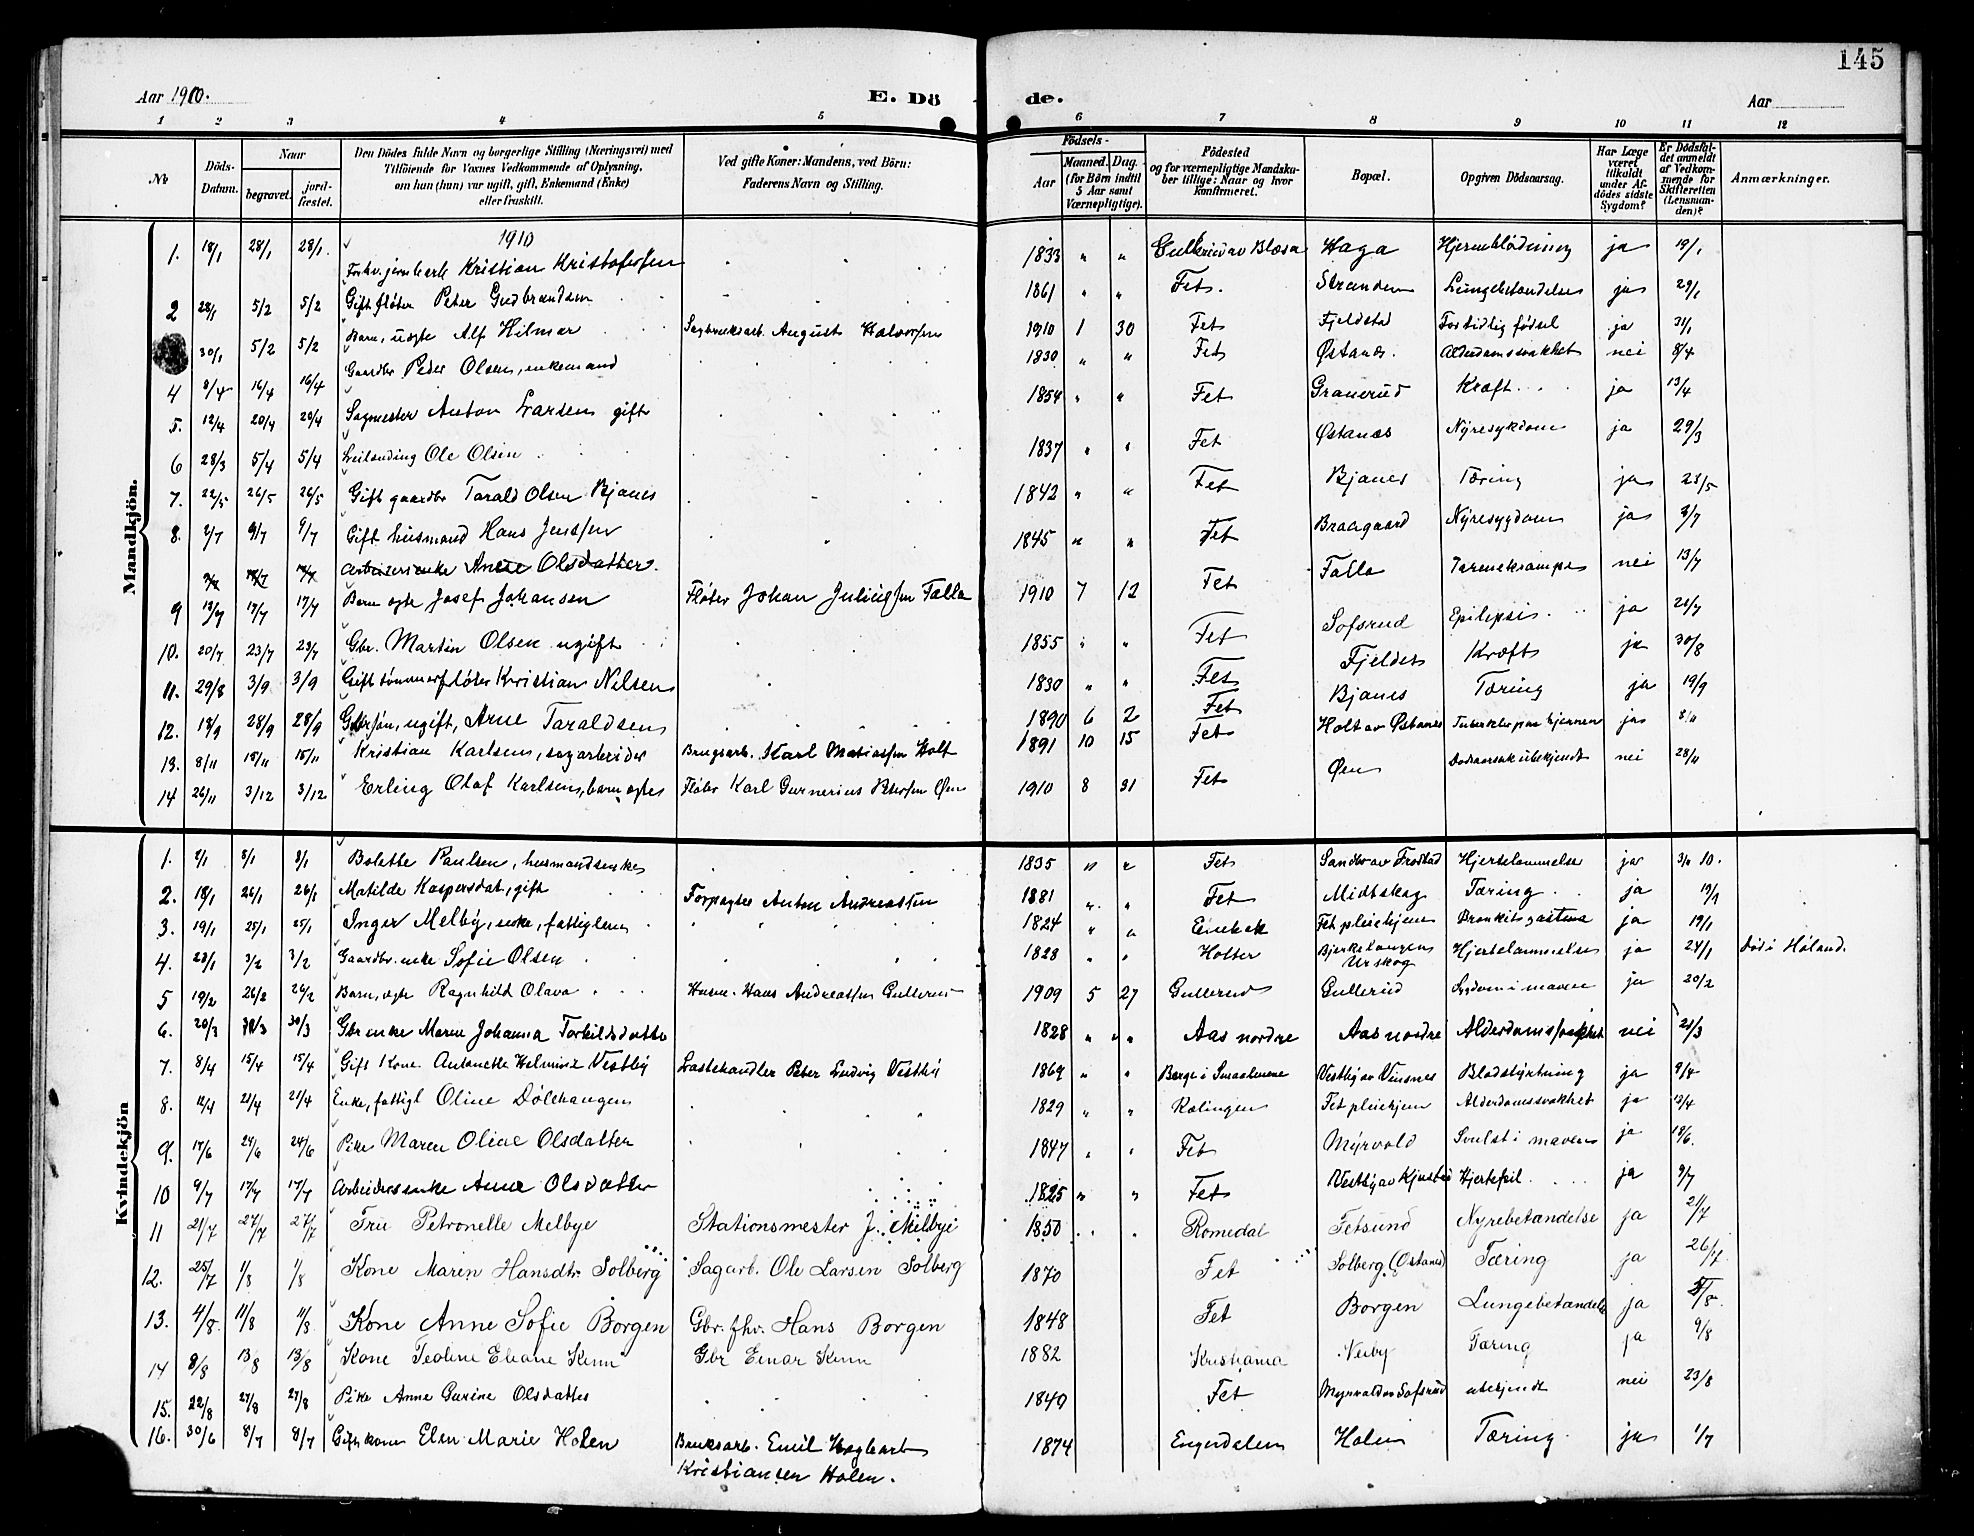 145
Aar 1910.
E. Dö
de.
Aar
1 2 3 4 5 6 7 8 9 10 11 12
No
Döds-Datum.
Naar
begravet.
jord-fæstet.
Den Dödes fulde Navn og borgerlige Stilling (Næringsvei) med
Tilföiende for Voxnes Vedkommende af Oplysning,
om han (hun) var ugift, gift, Enkemand (Enke)
eller fraskilt.
Ved gifte Koner: Mandens, ved Börn:
Faderens Navn og Stilling.
Födsels-
Aar
Maaned. Dag.
(for Börn indtil
5 Aar samt
Værnepligtige).
Födested
og for værnepligtige Mandska-
ber tillige: Naar og hvor
konfirmeret.
Bopæl.
Opgiven Dödsaarsag.
Har Læge
været
tilkaldt
under Af-
dödes sidste
Sygdom?
Er Dödsfal-
det anmeldt
af Vedkom-
mende for
Skifteretten
(Lensman-
den)?
Anmærkninger.
Mandkjön.
1910
1. 18/1 28/1 28/1. Forhv. jernbarb Kristian Kristofersen 1833 " " Gullerud av Blæsa Haga Hjerneblødning ja 19/1
2 28/1 5/2 5/2 Gift fløter Peter Gudbrandsen 1861 " " Fet. Stranden Lungebetændelse ja 29/1
30/1 5/2 5/2 Barn, uægte Alf Hilmar Sagbruksarb. August Halvorsen 1910 1 30 Fet Fjeldstad For tidlig fødsel ja 31/1
4 8/4 16/4 16/4 Gaardbr Peder Olsen, enkemand 1830 " " Fet Østanæs. Alderdomssvakhet nei 8/4
5. 12/4 20/4 20/4 Sagmester Anton Larsen gift 1854 " " Fet Granerud Kræft ja 13/4
6 28/3 5/4 5/4 Leilending Ole Olsen 1837 " " Fet Østanæs Nyresykdom ja 29/3
7. 22/5 26/5 26/5 Gift gaardbr Tarald Olsen Bjanes 1842 " " Fet Bjanes Tæring ja 23/5
8. 2/7 9/7 9/7 Gift husmand Hans Jensen 1845 " " Fet Braagaard Nyresygdom ja 3/7
Arbeiderenke Anne Olsdatter.
9 12/7 17/7 17/7 Barn ægte Josef Johansen Fløter Johan Juliussen Falla 1910 7 12 Fet Falla Tarmekrampe nei 13/7
10. 20/7 23/7 23/7 Gbr. Martin Olsen ugift 1855 " " Fet Sofsrud Epilepsi ja 21/7
11. 29/8 3/9 3/9 Gift tømmerfløter Kristian Nilsen 1830 " " Fet Fjeldet Kræft ja 30/8
12. 18/9 28/9 28/9 Gbrsøn, ugift, Arne Taraldsen 1890 6 2 Fet Bjanes Tæring ja 19/9
13. 8/11 15/11 15/11 Kristian Karlsen, sagarbeider Brugsarb. Karl Matiassen Holt 1891 10 15 Fet Holt av Østanes Tuberkler paa hjernen ja 8/11
14 26/11 3/12 3/12 Erling Olaf Karlsen, barn ægte Fløter Karl Gunerius Petersen Øen 1910 8 31 Fet Øen Dødsaarsak ubekjendt nei 28/11
Kvindekjön
1. 2/1 8/1 8/1 Bolette Paulsen, husmandsenke 1835 " " Fet Sandbr av Frostad Hjertelammelse ja 3/1 10.
2. 18/1 26/1 26/1 Matilde Kaspersdat, gift Forpagter Anton Andreassen 1881 " " Fet Midtskog Tæring ja 19/1
3. 19/1 25/1 25/1 Inger Melby, enke, fattiglem 1824 " " Eneb.k Fet pleiehjem Bronkit og astma ja 19/1
4. 23/1 3/2 3/2 Gaardbr. enke Sofie Olsen 1828 " " Holter Bjerkelangen Urskog Hjertelammelse ja 24/1 Død i Høland.
5 19/2 26/2 26/2 Barn, ægte Ragnhild Olava Husm. Hans Andreassen Gullerud 1909 5 27 Gullerud Gullerud Sygdom i maven ja 20/2
6. 20/3 30/3 30/3 Gbr enke Maren Johanna Torkildsdatter 1828 " " Aas nordre Aas nordre Alderdomssvakhet nei 21/3
7. 8/4 15/4 15/4 Gift Kone Antonette Helmine Vestby Lastehandler Peter Ludvig Vestby 1869 " " Berge i Smaalenene Vestby av Vinsnes Blodstyrtning ja 9/4
8. 12/4 21/4 21/4 Enke, fattigl Oline Dølehaugen 1829 " " Rælingen Fet pleiehjem Alderdomssvakhet ja 13/4
9. 17/6 24/6 24/6 Pike Maren Oline Olsdatter 1847 " " Fet Myrvold Svulst i maven ja 18/6.
10 9/7 17/7 17/7 Arbeidersenke Anne Olsdatter 1825 " " Fet Vestby av Kjustbe Hjertefeil ja 9/7
11 21/7 27/7 27/7 Fru Petronelle Melbye Stationsmester J. Melbye 1850 Romedal Fetsund Nyrebetændelse ja 21/7
12. 25/7 1/8 1/8 Kone Maren Hansdtr. Solberg Sagarb. Ole Larsen Solberg 1870 Fet Solberg (Østanes) Tæring ja 26/7
13. 4/8. 11/8 11/8 Kone Anne Sofie Borgen Gbr. fhv. Hans Borgen 1848 Fet Borgen Lungebetændelse ja 5/8.
14 8/8 13/8 13/8 Kone Teoline Eliane Kinn Gbr Einar Kinn 1882 Kristiania Nerby Tæring ja 9/8
15. 22/8 27/8 27/8 Pike Anne Gurine Olsdatter 1849 Fet Myrvold av Sofsrud ubekjendt nei 23/8
16. 30/6 8/7 8/7 Gift kone Elen Marie Holen Bruksarb. Emil Hagbart Kristiansen Holen. 1874 Engerdalen Holen Tæring. ja 1/7